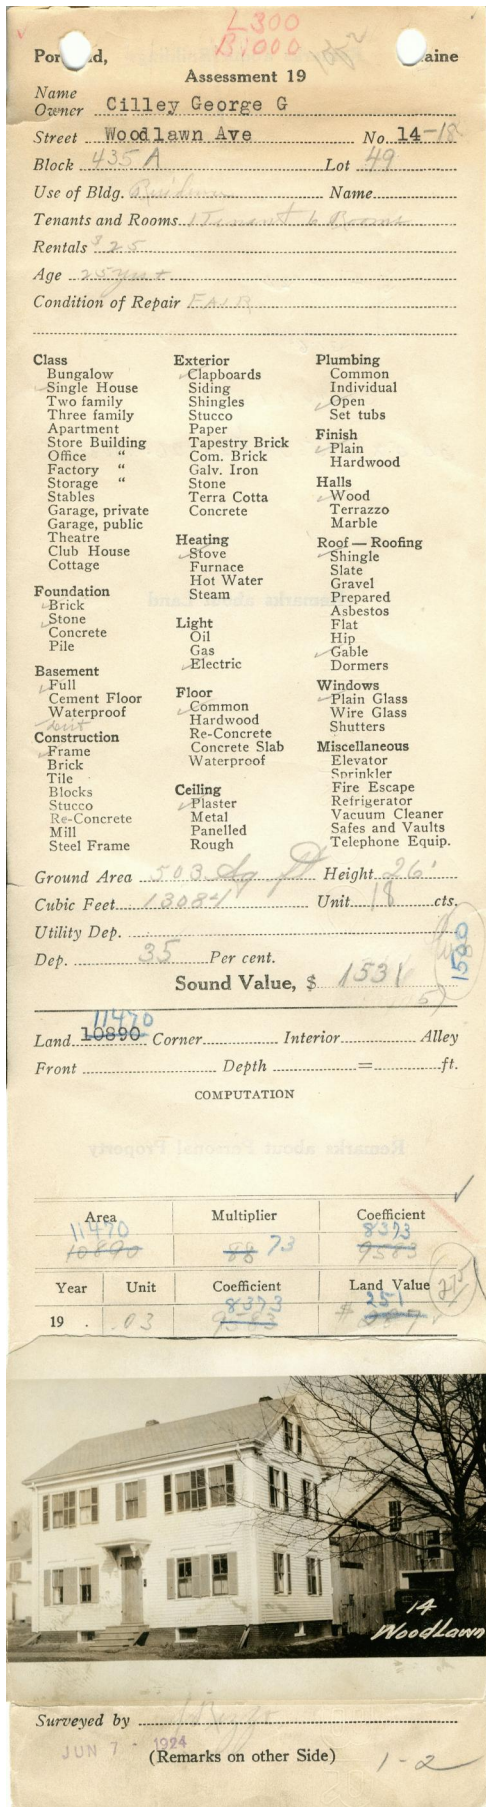 L300
B1000
Portland, Maine
Assessment 19
Name
Owner Cilley George G
Street Woodlawn Ave No. 14-18
Block 435 A Lot 49
Use of Bldg. Residence Name
Tenants and Rooms 1 Tenant 6 Rooms
Rentals $25
Age 25 yrs +
Condition of Repair FAIR
Class
Bungalow
Single House
Two family
Three family
Apartment
Store Building
Office "
Factory "
Storage "
Stables
Garage, private
Garage, public
Theatre
Club House
Cottage
Foundation
Brick
Stone
Concrete
Pile
Basement
Full
Cement Floor
Waterproof
dirt
Construction
Frame
Brick
Tile
Blocks
Stucco
Re-Concrete
Mill
Steel Frame
Exterior
Clapboards
Siding
Shingles
Stucco
Paper
Tapestry Brick
Com. Brick
Galv. Iron
Stone
Terra Cotta
Concrete
Heating
Stove
Furnace
Hot Water
Steam
Light
Oil
Gas
Electric
Floor
Common
Hardwood
Re-Concrete
Concrete Slab
Waterproof
Ceiling
Plaster
Metal
Panelled
Rough
Plumbing
Common
Individual
Open
Set tubs
Finish
Plain
Hardwood
Halls
Wood
Terrazzo
Marble
Roof — Roofing
Shingle
Slate
Gravel
Prepared
Asbestos
Flat
Hip
Gable
Dormers
Windows
Plain Glass
Wire Glass
Shutters
Miscellaneous
Elevator
Sprinkler
Fire Escape
Refrigerator
Vacuum Cleaner
Safes and Vaults
Telephone Equip.
Ground Area 503 Sq Ft Height 26'
Cubic Feet 13084 Unit 18 cts.
Utility Dep.
Dep. 35 Per cent.
1500
Sound Value, $ 1531
11470
Land 10890 Corner Interior Alley
Front Depth = ft.
COMPUTATION
Area Multiplier Coefficient
11470 8373
10890 88 73 9583
Year Unit Coefficient Land Value 275
8373 251
19 . .03 9583 $ 287
14
Woodlawn
Surveyed by
JUN 7 - 1924
(Remarks on other Side) 1-2